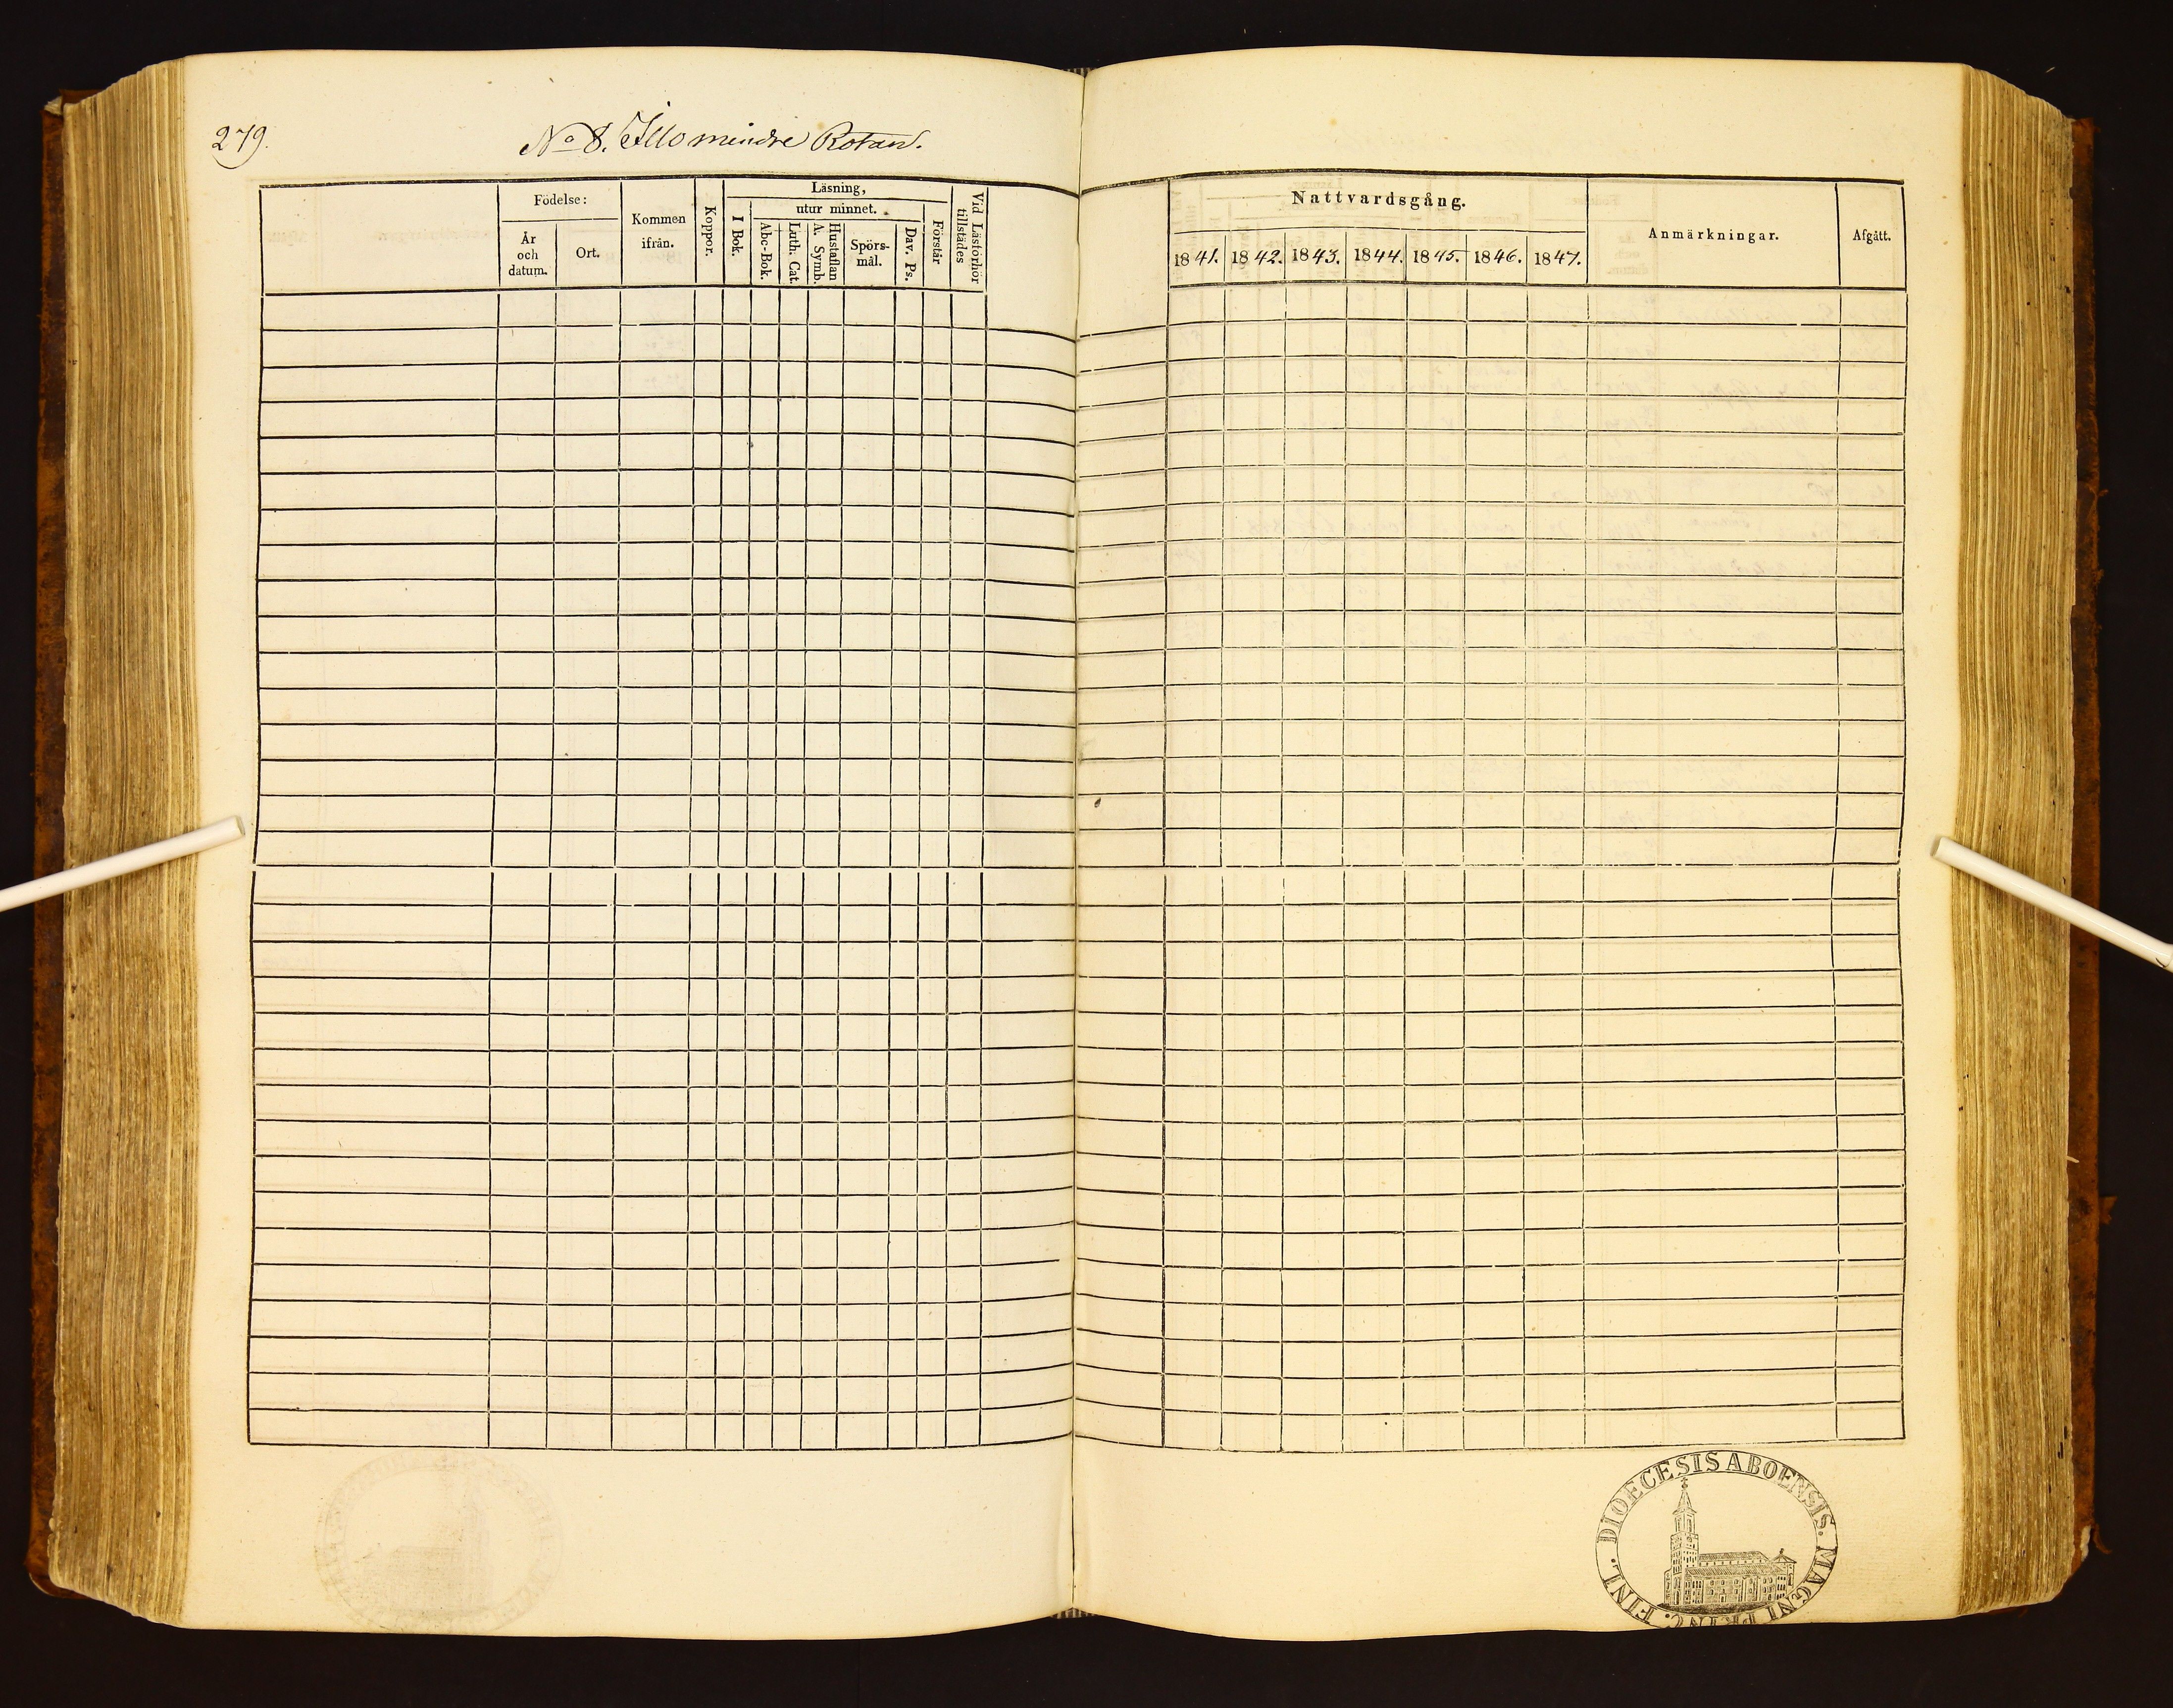 279.
No 8. Illo mindre Rotan.
Födelse:
År och datum.
Ort.
Kommen ifrån.
Koppor.
Läsning,
I Bok.
utur minnet.
Abc-Bok.
Luth. Cat.
Hustaflan A. Symb.
Spörs-mål.
Dav. Ps.
Förstår
Vid Läsförhör tillstädes
Nattvardsgång.
1841. 1842. 1843. 1844. 1845. 1846. 1847.
Anmärkningar.
Afgått.
DIOECESIS ABOENSIS. MAGNI PRINC. FINL.